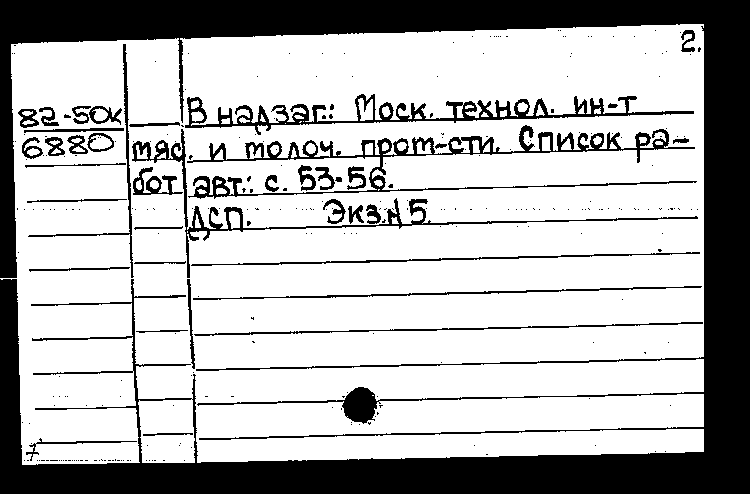 2.
82-50к
6880
В надзаг.: Моск. технол. ин-т
мяс. и молоч. пром-сти. Список ра-
бот авт.: с. 53-56.
ДСП. Экз.N 5.